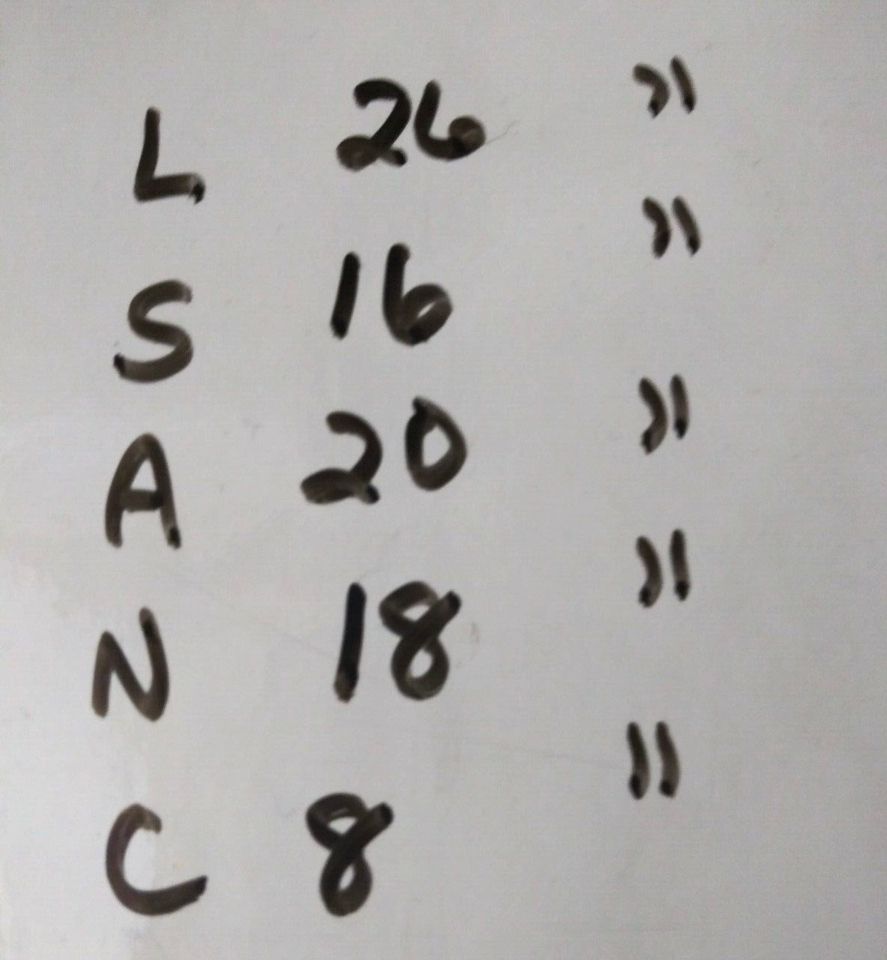 L 26 "
S 16 "
A 20 "
N 18 "
C 8 "